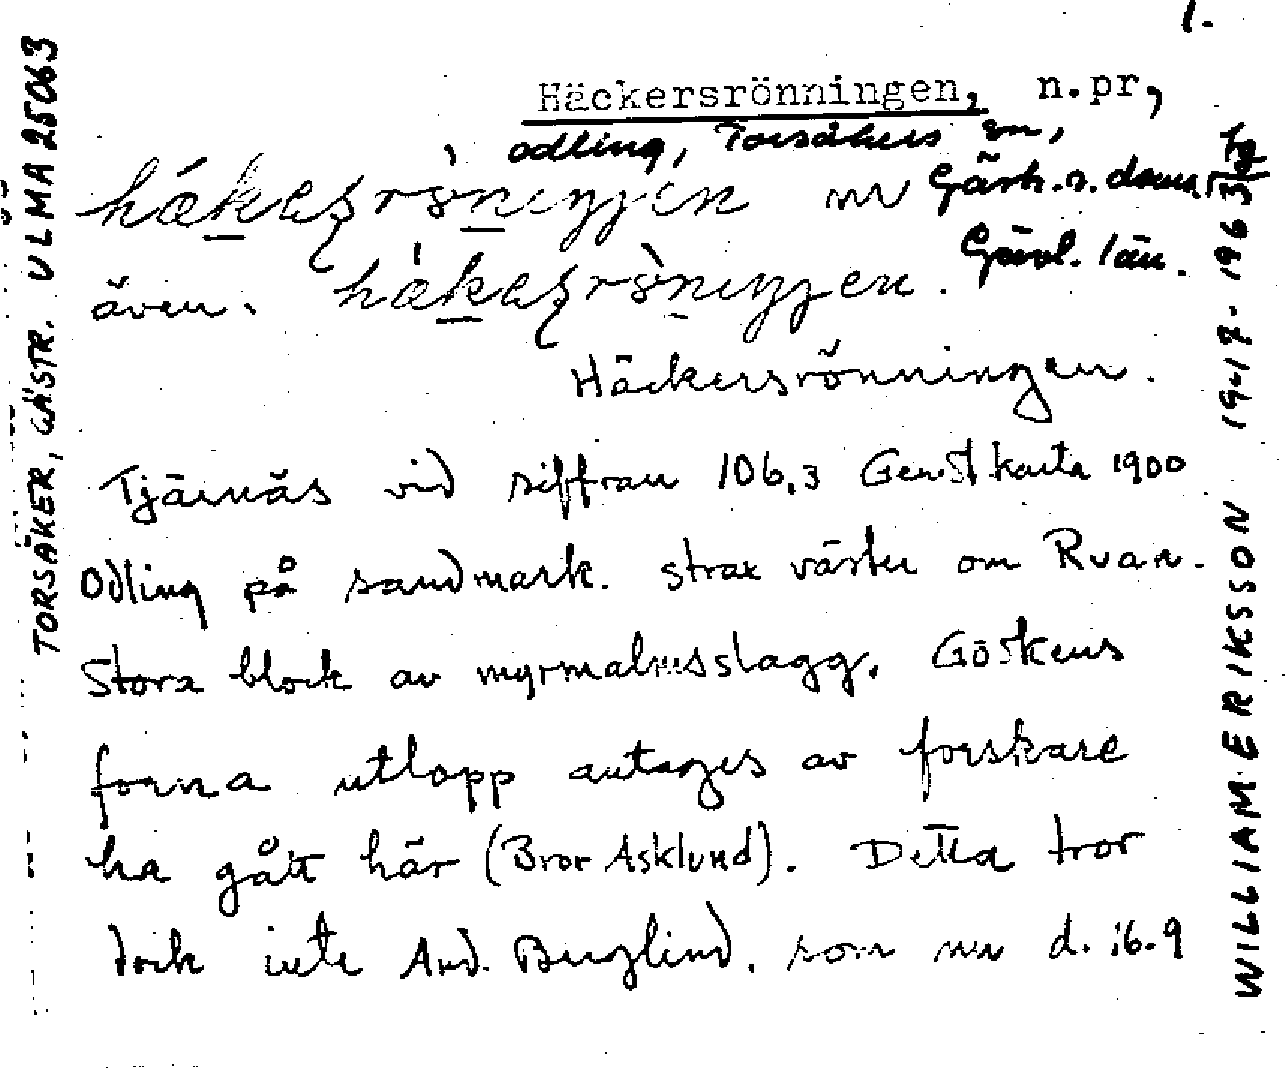 1.
Häckersrönningen, n.pr,
odling, Torsåkers sn,
Gästr. ö. domsaga
Gävl. län.
även.
Häckersrönningen.
Tjärnäs vid siffran 106,3 Gen.St karta 1900
Odling på sandmark. strax väster om Rvan.
Stora block av myrmalmsslagg. Göskens
forna utlopp antages av forskare
ha gått här (Bror Asklund). Detta tror
dock inte And. Berglind, som nu d. 16.9
TORSÅKER, GÄSTR. ULMA 25063
WILLIAM ERIKSSON 1917-1963